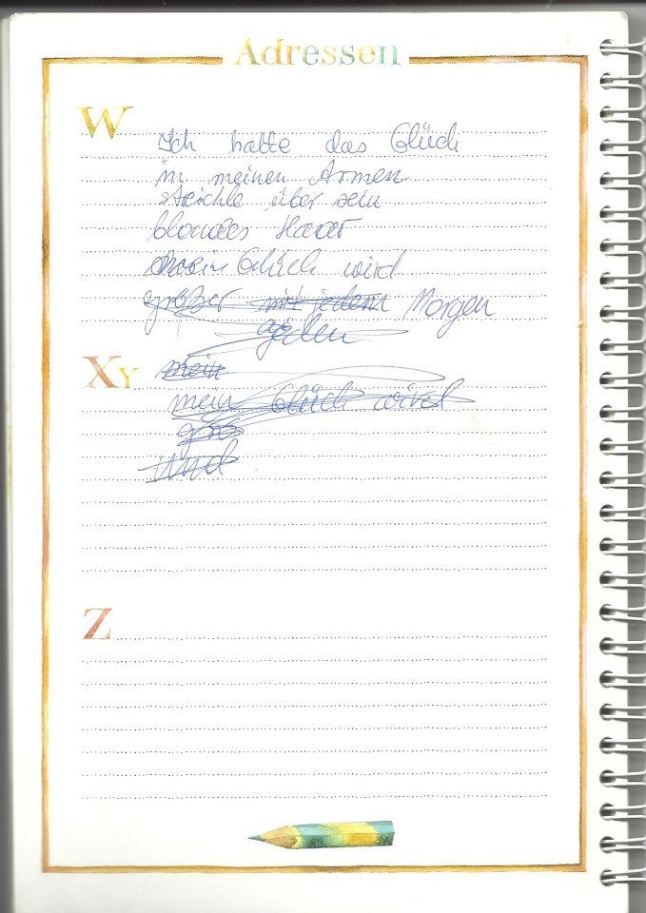 Adressen
W
Ich hatte das Glück
in meinen Armen
streichle über sein
blondes Haar
mein Glück wird
größer mit jedem Morgen
jeden
XY
mein
mein Glück wird
grö
und
Z